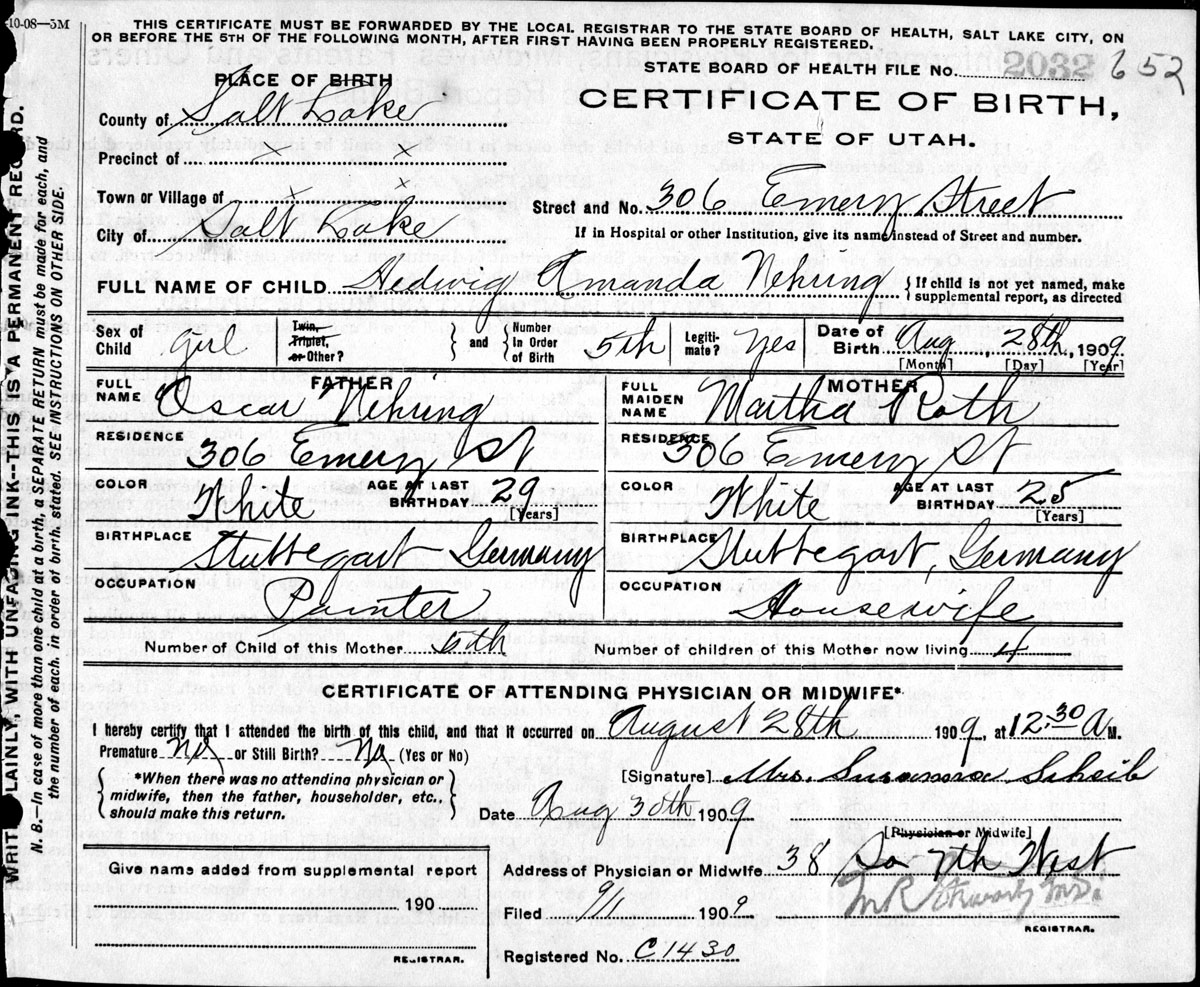 10-08—3M
THIS CERTIFICATE MUST BE FORWARDED BY THE LOCAL REGISTRAR TO THE STATE BOARD OF HEALTH, SALT LAKE CITY, ON
OR BEFORE THE 5TH OF THE FOLLOWING MONTH, AFTER FIRST HAVING BEEN PROPERLY REGISTERED.
STATE BOARD OF HEALTH FILE No. 2032 652
CERTIFICATE OF BIRTH,
STATE OF UTAH.
PLACE OF BIRTH
County of Salt Lake
Precinct of x x
Town or Village of x x
City of Salt Lake
Street and No. 306 Emery Street
If in Hospital or other Institution, give its name instead of Street and number.
FULL NAME OF CHILD Hedwig Amanda Nehring { If child is not yet named, make
supplemental report, as directed
Sex of Child girl
Twin, Triplet, or Other? — } and { Number In Order of Birth 5th
Legiti-mate? Yes
Date of Birth Aug, 28th, 1909
[Month] [Day] [Year]
FATHER
FULL NAME Oscar Nehring
RESIDENCE 306 Emery St
COLOR White AGE AT LAST BIRTHDAY 29 [Years]
BIRTHPLACE Stuttegart Germany
OCCUPATION Painter
MOTHER
FULL MAIDEN NAME Martha Roth
RESIDENCE 306 Emery St
COLOR White AGE AT LAST BIRTHDAY 25 [Years]
BIRTHPLACE Stuttegart, Germany
OCCUPATION Housewife
Number of Child of this Mother 5th Number of children of this Mother now living 4
CERTIFICATE OF ATTENDING PHYSICIAN OR MIDWIFE*
I hereby certify that I attended the birth of this child, and that it occurred on August 28th 1909, at 12:30 A M.
Premature No or Still Birth? No (Yes or No)
{ *When there was no attending physician or
midwife, then the father, householder, etc.,
should make this return. }
[Signature] Mrs. Susanna Scheib
Date Aug 30th 1909
[Physician or Midwife]
Address of Physician or Midwife 38 So 7th West
Filed 9/1 1909
REGISTRAR.
Registered No. C1430
Give name added from supplemental report
190
REGISTRAR.
WRITE PLAINLY WITH UNFADING INK--THIS IS A PERMANENT RECORD.
N. B.—In case of more than one child at a birth, a SEPARATE RETURN must be made for each, and
the number of each, in order of birth, stated. SEE INSTRUCTIONS ON OTHER SIDE.